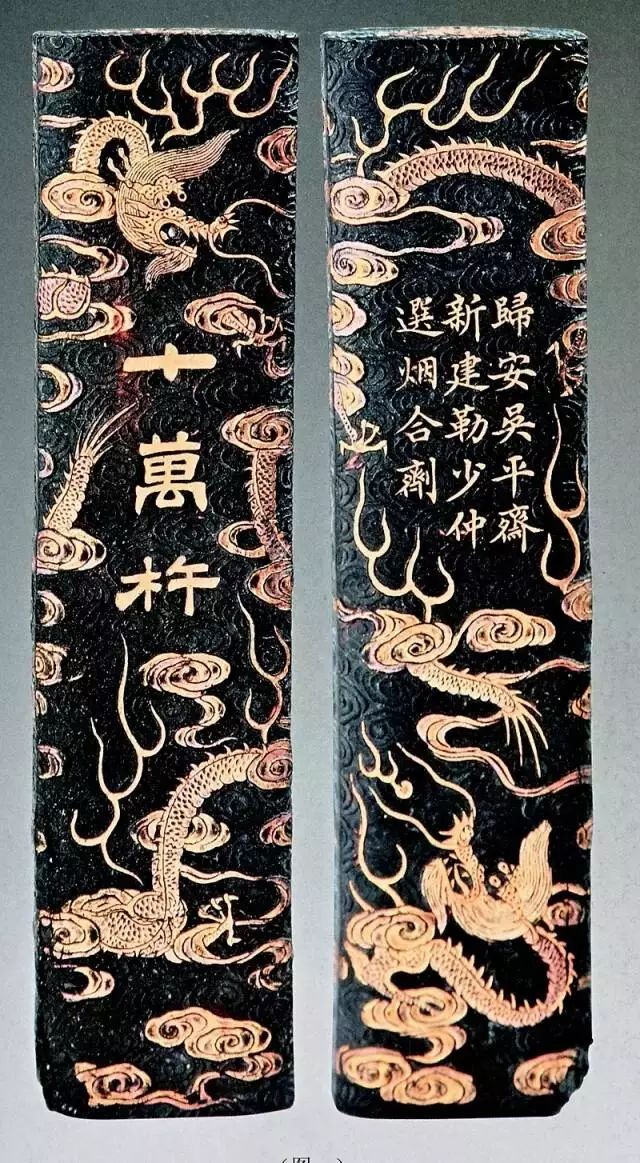 十萬杵
歸安吳平齋
新建勒少仲
選烟合劑